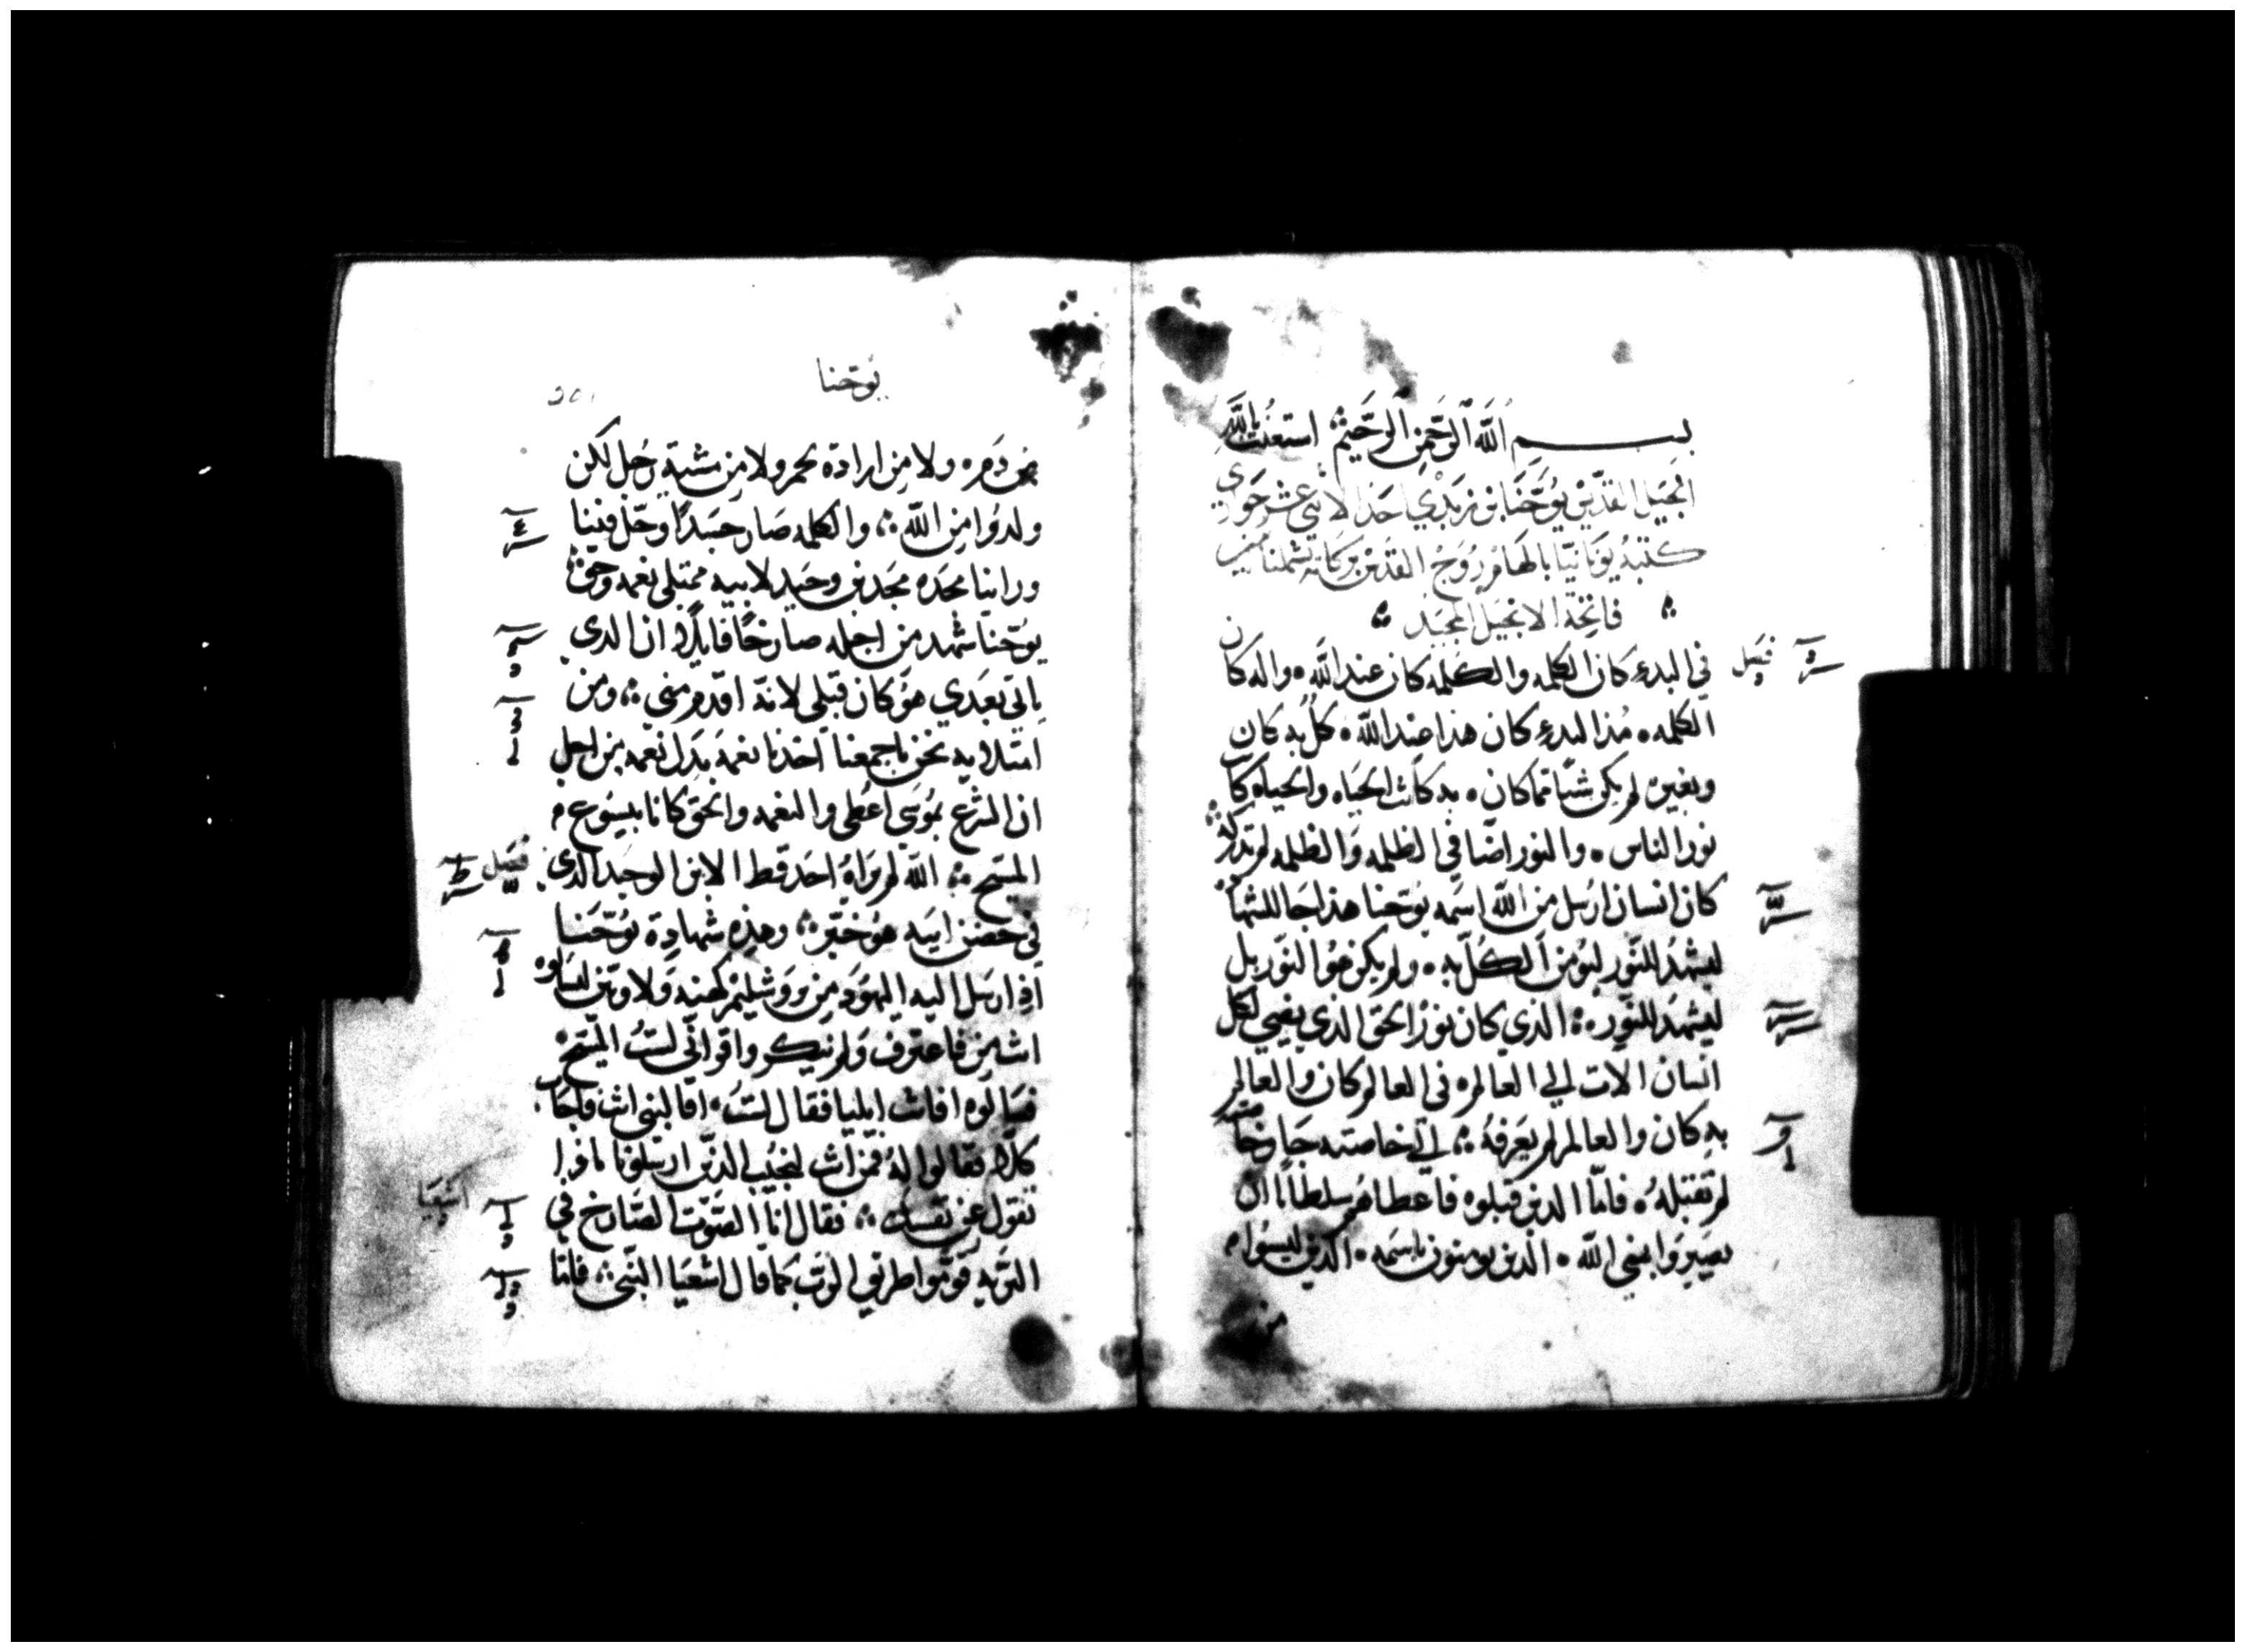 بسم الله الرحمن الرحيم استعنت بالله
انجيل القديس يوحنا ابن زبدي احد الاثني عشر حواري
كتبه يونانيا بالهام روح القدس بركاته تشملنا امين
فاتحة الانجيل المجيد
في البدء كان الكلمه والكلمه كان عند الله واله كان
الكلمه مذ البدء كان هذا عند الله كل به كان
وبغيره لم يكن شيا مما كان به كانت الحياه والحياه كا
نور الناس والنور اضا في الظلمه والظلمه لم تدركه
كان انسان ارسل من الله اسمه يوحنا هذا جا للشها
ليشهد للنور ليومن الكل به ولم يكن هو النور بل
ليشهد للنور الذي كان نور الحق الذي يضي لكل
انسان الات الي العالم في العالم كان والعالم
به كان والعالم لم يعرفه الي خاصته جا وخاصته
لم تقبله فاما الدين قبلوه فاعطاهم سلطانا ان
يصيروا بني الله الدين يومنون باسمه الدين ليسوا
من
فصل
يوحنا
من دم ولا من ارادة لحم ولا من مشية رجل لكن
ولدوا من الله والكلمه صار جسدا وحل فينا
وراينا مجده مجد ابن وحيد لابيه ممتلي نعمه وحق
يوحنا شهد من اجله صارخا قايلا ان الدي
ياتي بعدي هو كان قبلي لانه اقدم مني ومن
امتلايه نحن باجمعنا اخذنا نعمه بدل نعمه من اجل
ان الشرع بموسى اعطي والنعمه والحق كانا بيسوع
المسيح الله لم يراه احد قط الابن الوحيد الدي
في حضن ابيه هو خبر وهذه شهادة يوحنا
اذ ارسل اليه اليهود من يروشليم كهنه ولاويين ليسالوه
انت من فاعترف ولم ينكر واقر اني لست المسيح
فسالوه افانت ايليا فقال لست افالنبي انت فاجاب
كلا فقالوا له فمن انت لنجيب الدين ارسلونا ماذا
تقول عن نفسك فقال انا الصوت الصارخ في
البريه قوموا طريق الرب كما قال اشعيا النبي فاما
فصل
اشعيا